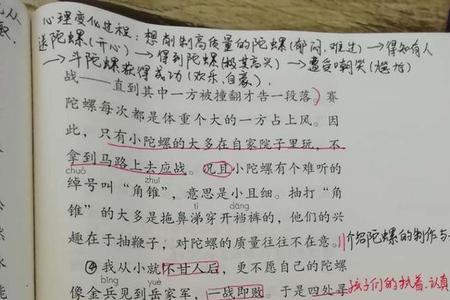 从
取
心理变化过程：想削制高质量的陀螺(郁闷、难过)→得知有人
送陀螺(开心)→得到陀螺(极其高兴)→遭受嘲笑(尴尬)
→斗陀螺获得成功(欢乐、自豪).
战——直到其中一方被撞翻才告一段落）赛
陀螺每次都是体重个大的一方占上风。因
此，只有小陀螺的大多在自家院子里玩，不
拿到马路上去应战。况且小陀螺有个难听的
chuò zhuī
绰号叫“角锥”，意思是小且细。抽打“角
tì dāng
锥”的大多是拖鼻涕穿开裆裤的，他们的兴
趣在于抽鞭子，对陀螺的质量往往不在意。介绍陀螺的制作与
④我从小就不甘人后，更不愿自己的陀螺
孩子们的执着、认真
bīng yuè
像金兵见到岳家军，一战即败。于是四处寻